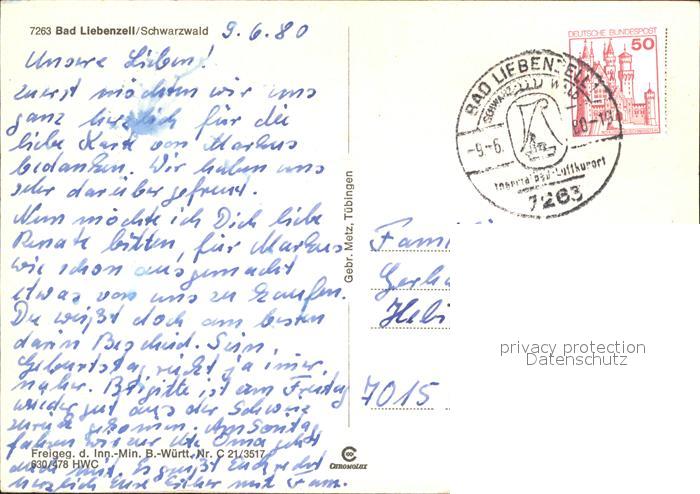 7263 Bad Liebenzell/Schwarzwald 9.6.80
Unsere Lieben!
zuerst möchten wir uns
ganz herzlich für die
liebe Karte von Markus
bedanken. Wir haben uns
sehr darüber gefreut.
Nun möchte ich Dich liebe
Renate bitten, für Markus
wie schon ausgemacht
etwas von uns zu kaufen.
Du weißt doch am besten
darin Bescheid. Sein
Geburtstag rückt ja immer
näher. Brigitte ist am Freitag
wieder gut aus der Schweiz
zurück gekommen. Am Sonntag
fahren wir zur Oma
Freigeg. d. Inn.-Min. B.-Württ. Nr. C 21/3517
630/478 HWC
auch mit. Es grüßt Euch recht
herzlich Eure mit Fam.
Gebr. Metz, Tübingen
CHROMOLUX
DEUTSCHE BUNDESPOST
50
BAD LIEBENZELL 1
SCHWARZWALD
-9.-6. 80-19
7263
Fami
Gerha
Hebi
7015
privacy protection
Datenschutz